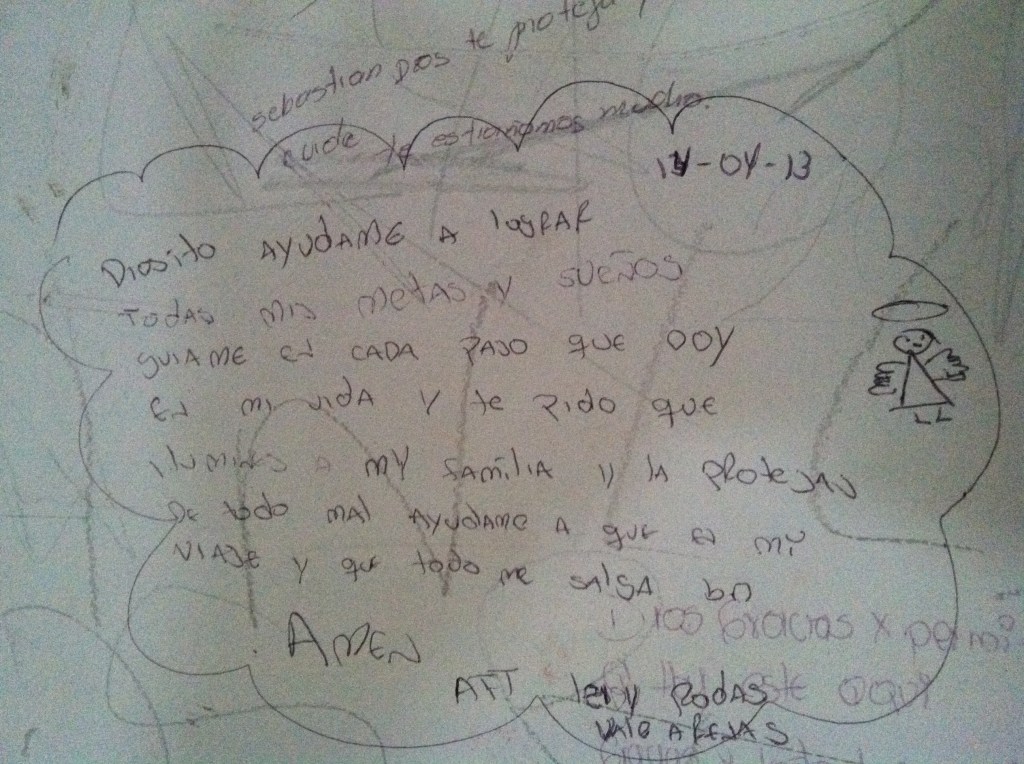 sebastian Dios te proteja
cuide te estimamos mucho.
-04-13
Diosito AYUDAME A lograr
TODAS mis metas y sueños
guiame en CADA paso que doy
en mi vida y te pido que
ilumines a my familia y la protejas
de todo mal AYUDAME A que en mi
VIAJE y que todo me salga bn
AMEN
ATT leny Rodas
Dios Gracias x permi
este